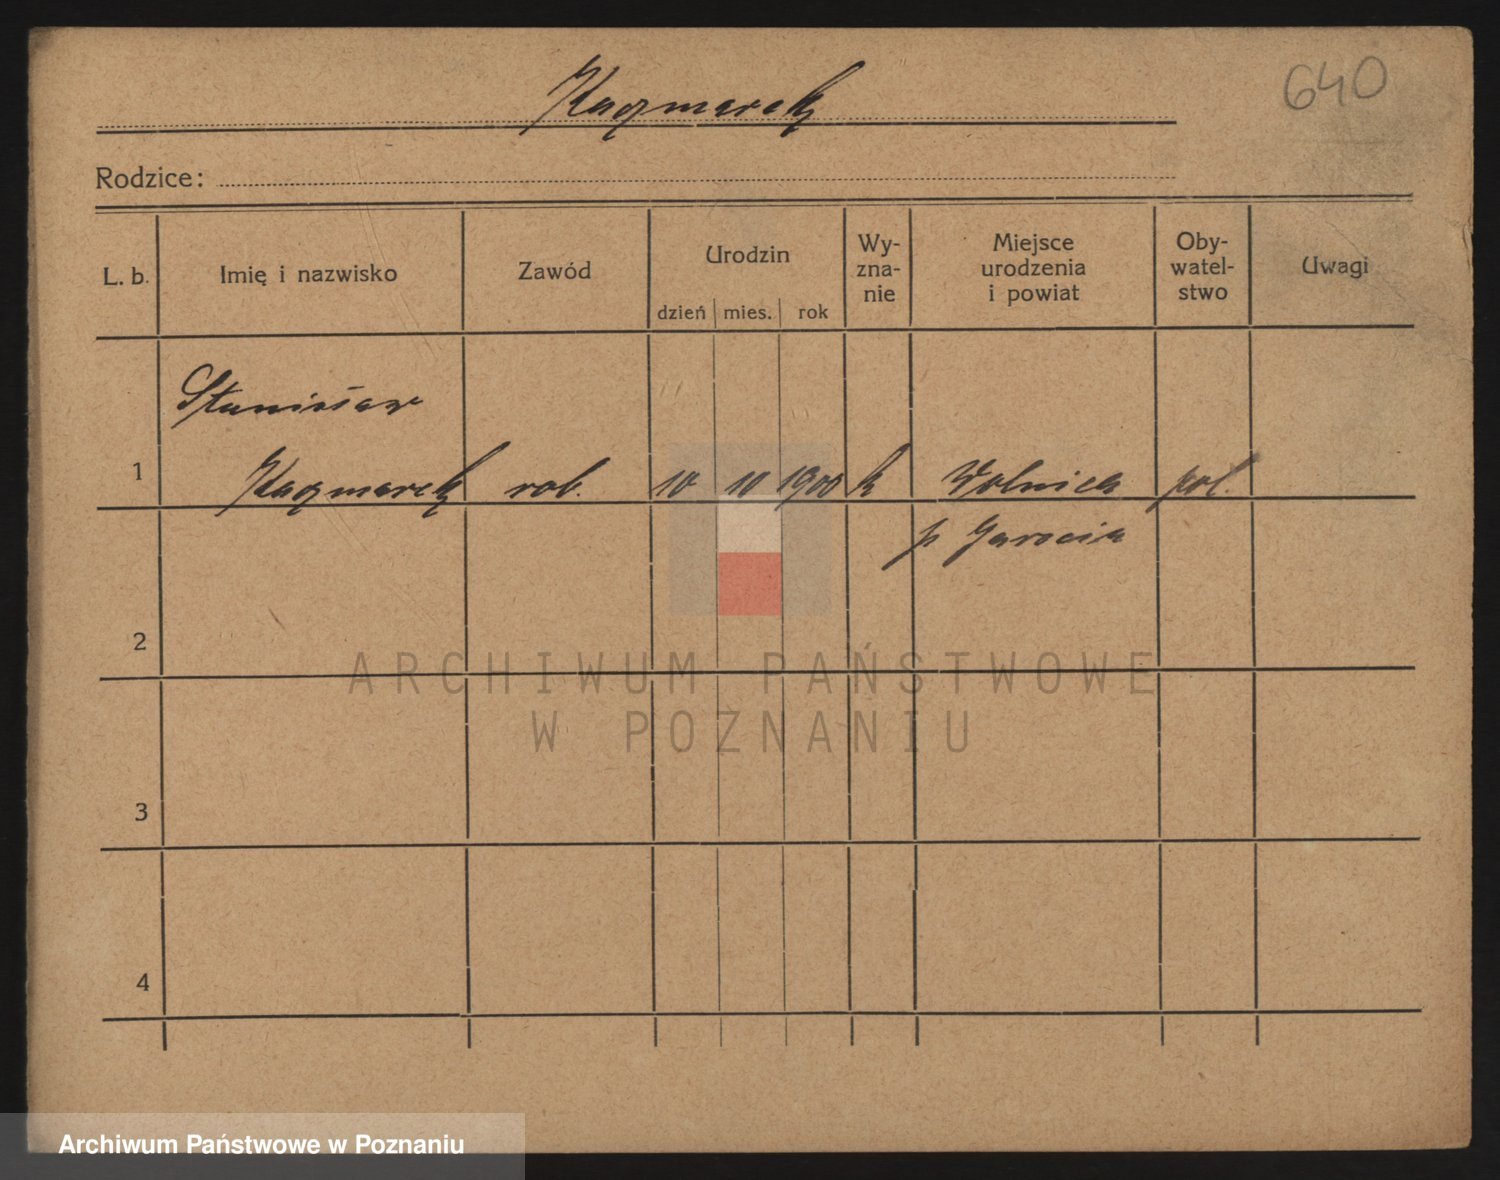 640
Kaczmarek
Rodzice:
L. b. Imię i nazwisko Zawód Urodzin dzień mies. rok Wy-zna-nie Miejsce urodzenia i powiat Oby-watel-stwo Uwagi
Stanisław
1 Kaczmarek rob. 10 10 1900 k Wolnica pol.
p Jarocin
2
ARCHIWUM PAŃSTWOWE
W POZNANIU
3
4
Archiwum Państwowe w Poznaniu